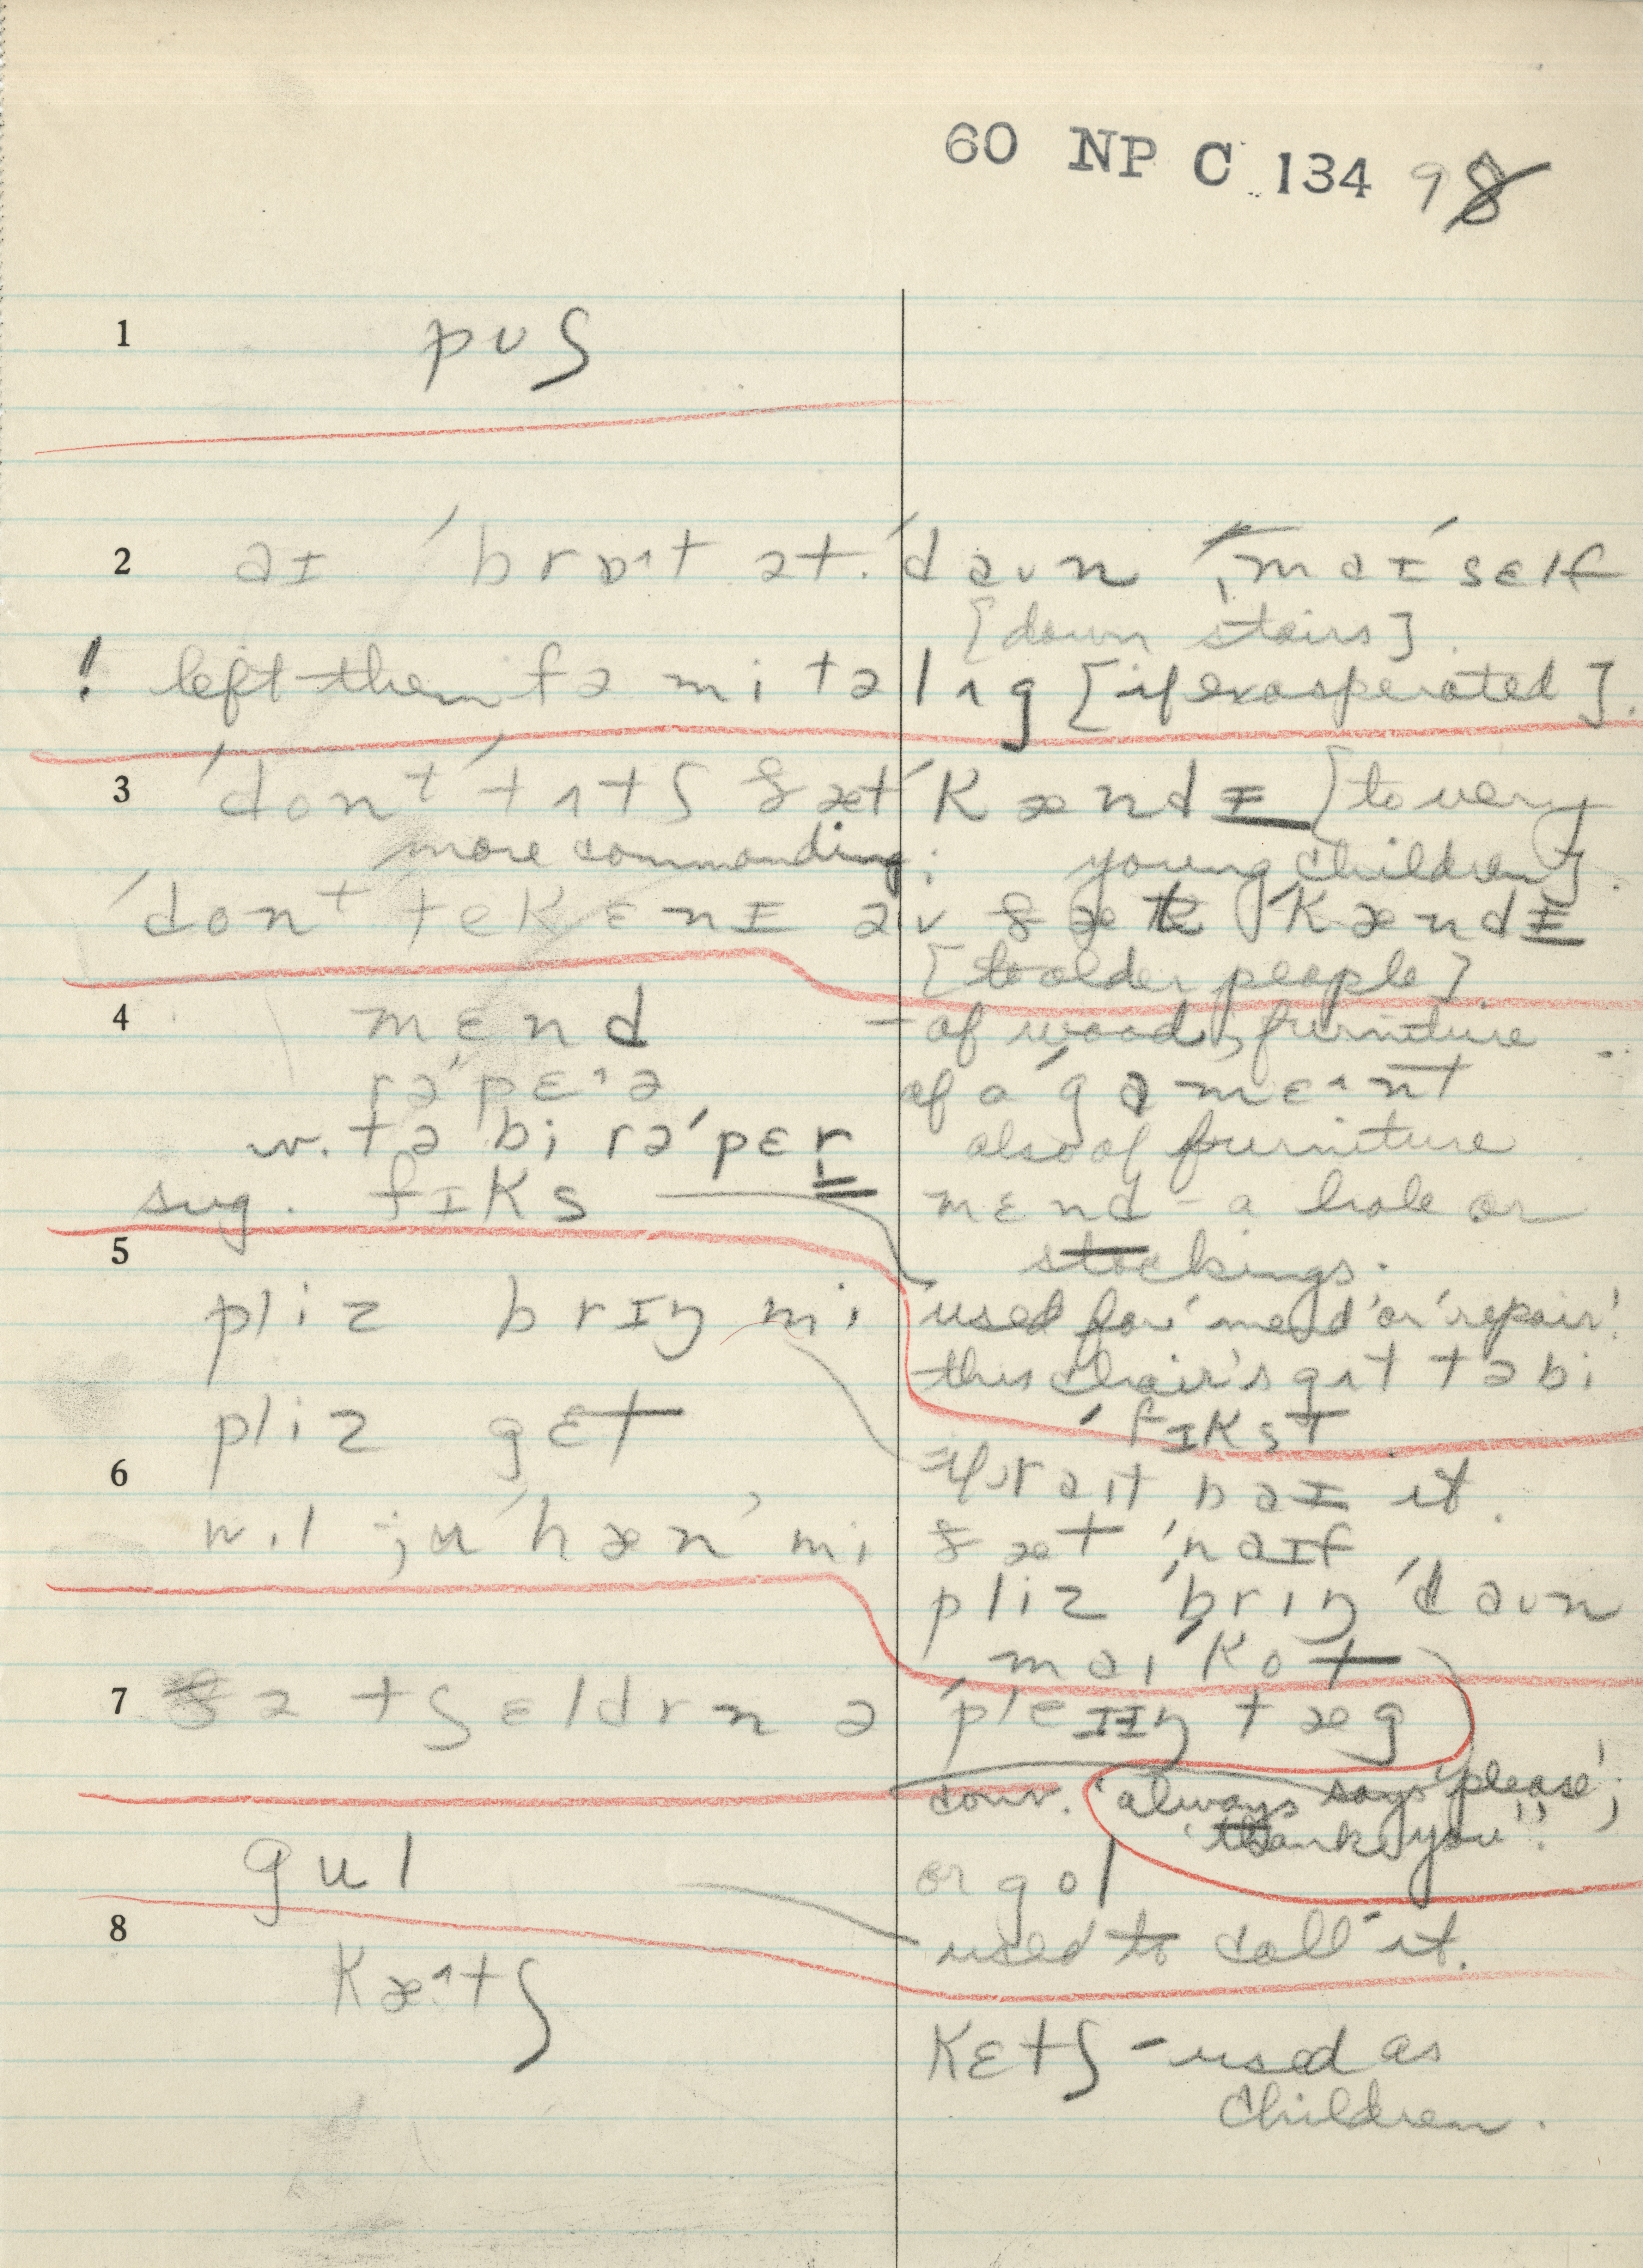 60 NP C 134 98
1 pʊʃ
2 aɪ ˈbrɒˑt ət ˈdaʊn ˈmaɪˈself
[down stairs].
! left them fə mi tə lʌg [if exasperated].
3 ˈdonᵗ ˈtʌtʃ ðæt ˈkændɪ [to very
more commanding: young children].
ˈdonᵗ tek ɛnɪ əv ðæt ˈkændɪ
[to older people].
4 mɛnd – of wood, furniture
rəˈpɛˑə of a ˈgɑmɛˑnt
w. tə bi rəˈpɛr also of furniture
sug. fɪks mɛnd – a hole or
stockings.
5 used for 'mend' or 'repair'.
pliz brɪŋ mi this chair's gɑt tə bi
ˈfɪkst
pliz gɛt
6 wɪl ju ˈhæn' mi ðæt ˈnaɪf
pliz ˈbrɪŋ ˈdaʊn
maɪ ˈkot
7 ðə tʃɛldrn ə ˈpleɪɪŋ tæg
conv. 'always says 'please';
'thank you''!
gul or gol
8 used to call it.
kæˑtʃ
kɛtʃ – used as
children.